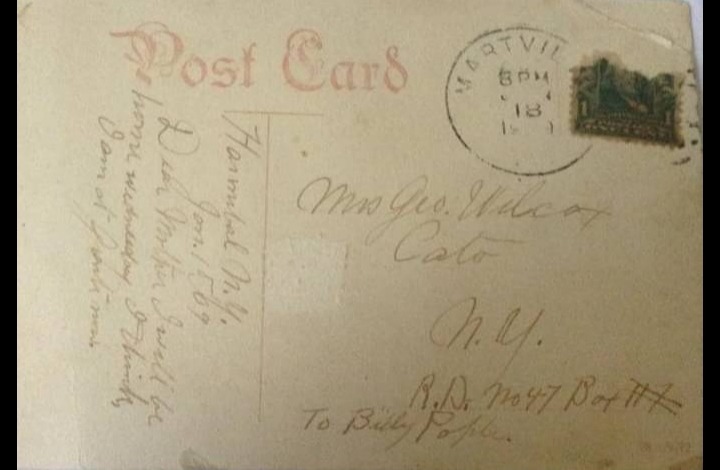 Post Card
MARTVIL
8 PM
18
Hannibal N.Y.
Jan. 15 09
Dear Mother I will be
home wednesday I think,
I am at
Mrs Geo. Wilcox
Cato
N.Y.
R.D. No 47 Box
To Billy